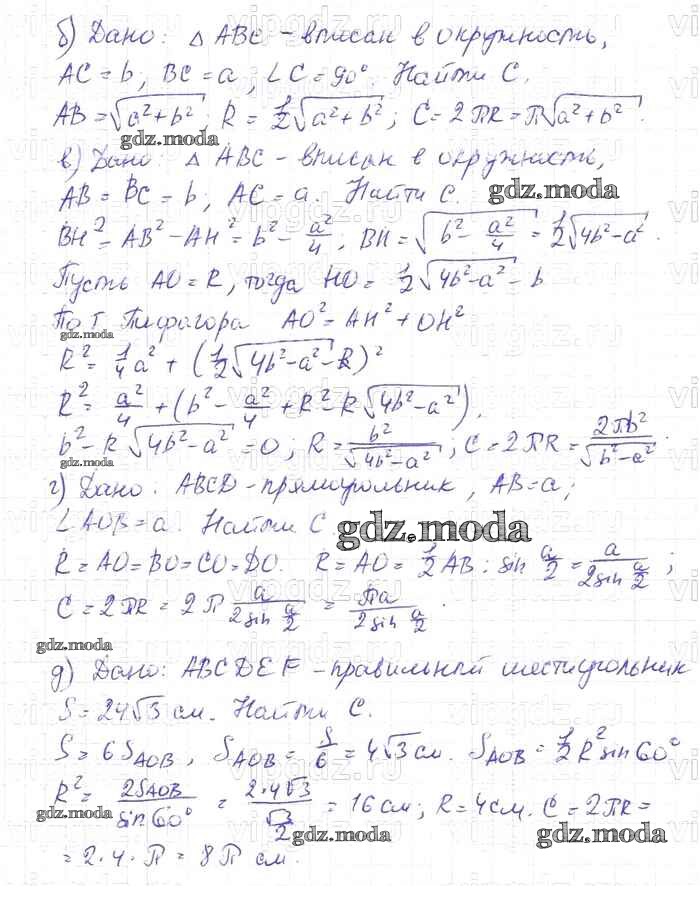 б) Дано: △ ABC – вписан в окружность,
AC = b, BC = a, ∠C = 90°. Найти C.
AB = √(a² + b²); R = ½√(a² + b²); C = 2πR = π√(a² + b²).
gdz.moda
в) Дано: △ ABC – вписан в окружность,
AB = BC = b, AC = a. Найти C.
gdz.moda
BH² = AB² – AH² = b² – a²/4; BH = √(b² – a²/4) = ½√(4b² – a²).
Пусть AO = R, тогда HO = ½√(4b² – a²) – b
По т. Пифагора AO² = AH² + OH²
gdz.moda
R² = ¼a² + (½√(4b² – a²) – R)²
R² = a²/4 + (b² – a²/4 + R² – R√(4b² – a²)).
b² – R√(4b² – a²) = 0; R = b²/√(4b² – a²); C = 2πR = 2πb²/√(b² – a²).
gdz.moda
г) Дано: ABCD – прямоугольник, AB = a;
∠AOB = a. Найти C.
gdz.moda
R = AO = BO = CO = DO. R = AO = ½AB : sin a/2 = a/(2 sin a/2);
C = 2πR = 2π a/(2 sin a/2) = πa/(2 sin a/2).
gdz.moda
д) Дано: ABCDEF – правильный шестиугольник
S = 24√3 см. Найти C.
S = 6S_AOB, S_AOB = S/6 = 4√3 см. S_AOB = ½R² sin 60°
R² = 2S_AOB/sin 60° = 2·4√3/(√3/2) = 16 см; R = 4 см. C = 2πR =
gdz.moda gdz.moda gdz.moda
= 2·4·π = 8π см.